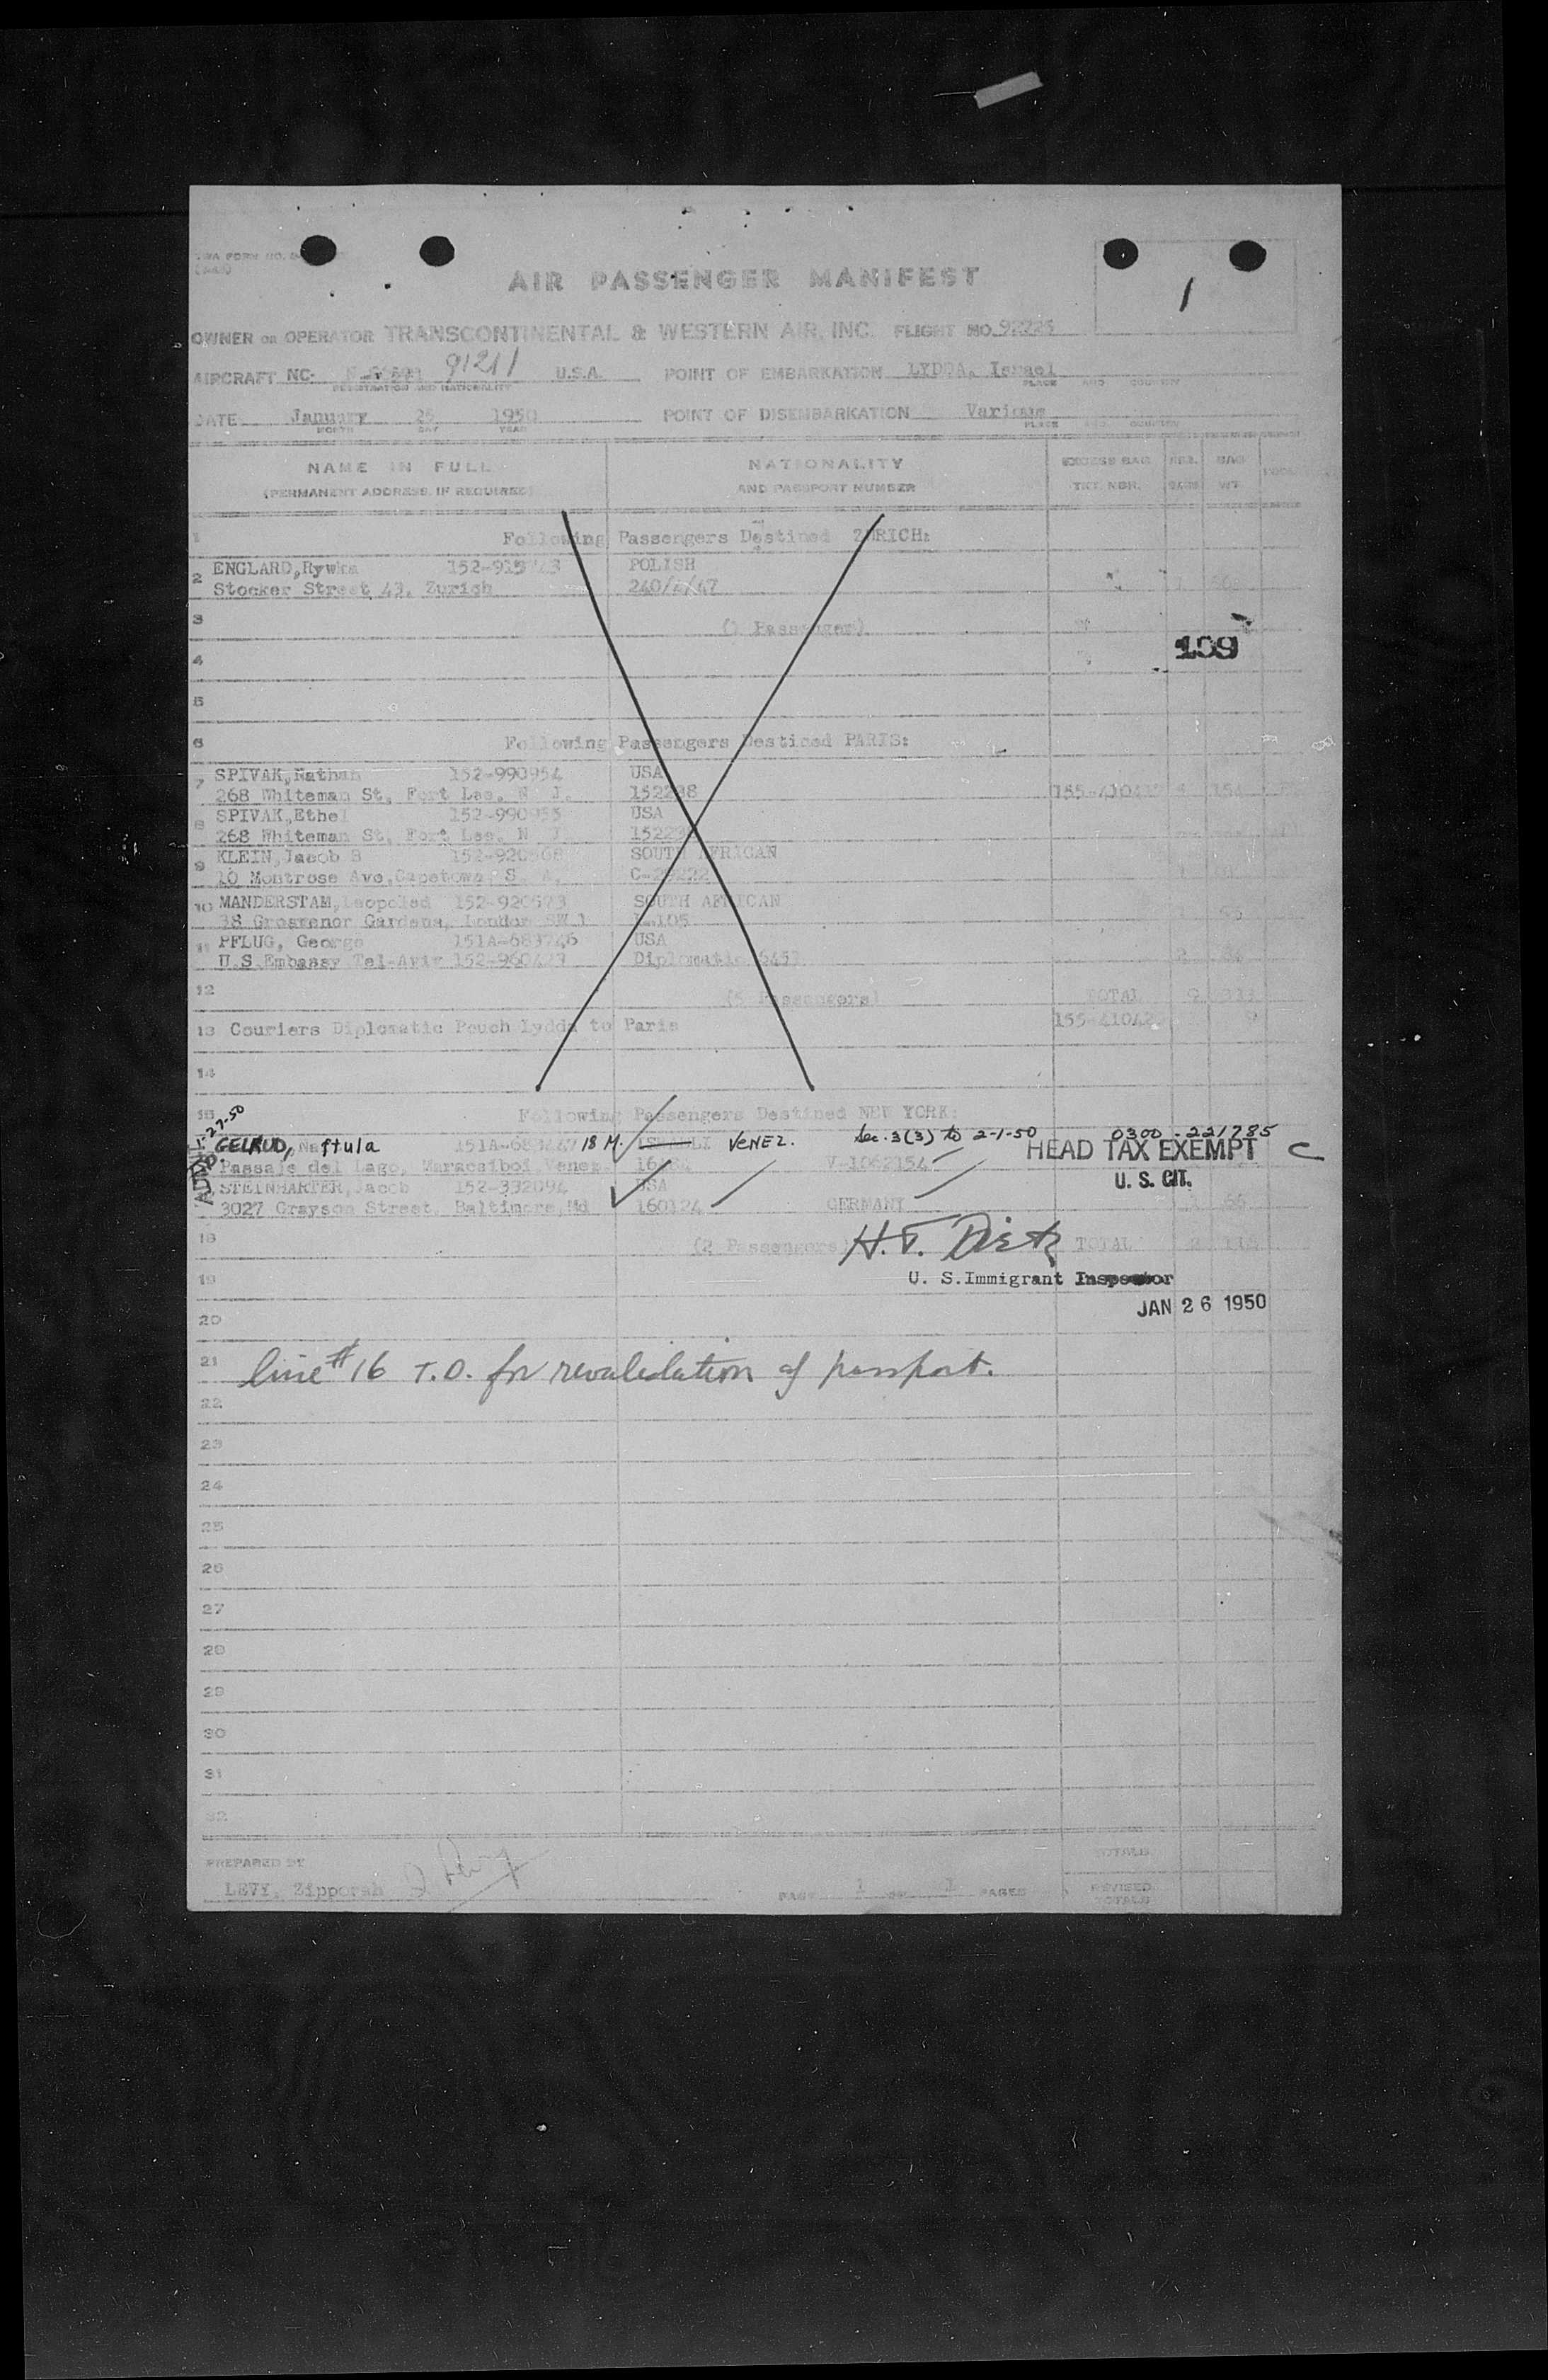 TWA FORM NO.
1
AIR PASSENGER MANIFEST
OWNER OR OPERATOR TRANSCONTINENTAL & WESTERN AIR, INC. FLIGHT NO. 92225
AIRCRAFT NC- 91211 U.S.A. POINT OF EMBARKATION LYDDA, Israel
REGISTRATION AND NATIONALITY PLACE AND COUNTRY
DATE January 25 1950 POINT OF DISEMBARKATION Various
MONTH DAY YEAR PLACE AND COUNTRY
NAME IN FULL NATIONALITY EXCESS BAG NBR. BAG
(PERMANENT ADDRESS, IF REQUIRED) AND PASSPORT NUMBER TKT. NBR. BAGS WT.
1 Following Passengers Destined ZURICH:
2 ENGLARD, Rywka POLISH
Stocker Street 43, Zurich 240/4/47
3 (1 Passenger)
109
4
5
6 Following Passengers Destined PARIS:
7 SPIVAK, Nathan 152-990954 USA
268 Whiteman St, Fort Lee. N J. 152238
8 SPIVAK, Ethel 152-990955 USA
268 Whiteman St, Fort Lee. N J.
9 KLEIN, Jacob B 152-920568 SOUTH AFRICAN
10 Montrose Ave, Capetown, S. A.
10 MANDERSTAM, Leopoled 152-920573 SOUTH AFRICAN
38 Grosvenor Gardens, London SW 1 L-105
11 PFLUG, George 151A-683746 USA
U.S.Embassy Tel-Aviv 152-960423 Diplomatic
12 (5 Passengers) TOTAL
13 Couriers Diplomatic Pouch Lydda to Paris
14
15 Following Passengers Destined NEW YORK:
ADMIT. 1-27-50
GELRUD, Naftula 18 M. ISRAELI VENEZ. Sec. 3(3) to 2-1-50 0300-221785
HEAD TAX EXEMPT C
Passaje del Lago, Maracaiboi Venez V-1062154
U. S. CIT.
STEINHARTER, Jacob 152-332094 USA
3027 Grayson Street, Baltimore, Md 160124 GERMANY 1 55
18 (2 Passengers) H. F. Dietz TOTAL
19 U. S. Immigrant Inspector
20 JAN 26 1950
21 line #16 T.O. for revalidation of passport.
22
23
24
25
26
27
28
29
30
31
32
PREPARED BY TOTALS
LEVY, Zipporah PAGE 1 OF 1 PAGES REVISED
TOTALS